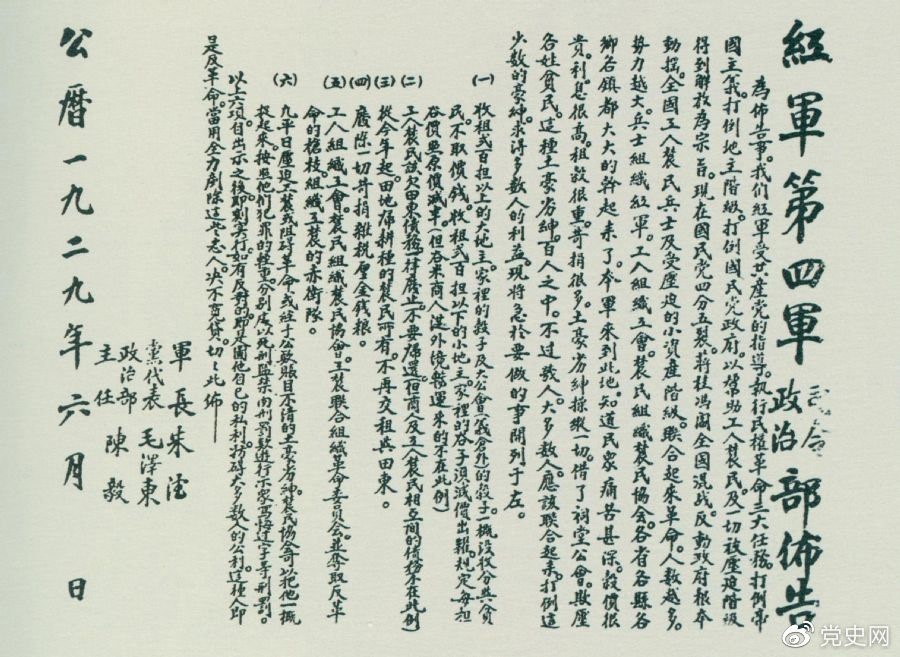 紅軍第四軍司令政治部佈告
為佈告事。我们紅軍受共產党的指導。执行民權革命三大任務。打倒帝
國主義。打倒地主階级。打倒國民党政府。以幫助工人農民。及一切被壓迫階级
得到解放為宗旨。现在國民党四分五裂。蔣桂馮阎全國混战。反動政府根本
動搖。全國工人農民兵士及受壓迫的小資產階级。联合起來革命。人數越多。
势力越大。兵士組織紅軍。工人組織工會。農民組織農民協会。各省各縣各
鄉各镇都大大的幹起来了。本軍来到此地。知道民眾痛苦甚深。穀價很
贵。利息很高。租穀很重。苛捐很多。土豪劣紳操縱一切。借了祠堂公會。欺壓
各姓貧民。這種土豪劣紳。百人之中。不过数人。大多数人。應該联合起来。打倒這
少数的豪紳。求得多数人的利益。现將急於要做的事開列于左。
(一)收租弍百担以上的大地主。家裡的穀子及大公會(義倉外)的穀子一概没收分與貧
民。不取價钱。收租弍百担以下的小地主。家裡的谷子須減價出糶。规定每担
谷價照原價减半。(但谷米商人從外境辦運来的不在此例)
(二)工人農民該欠田東債務。一律廢止。不要歸還。(但商人及工人農民相互间的債務不在此例)
(三)從今年起。田地歸耕種的農民所有。不再交租與田東。
(四)廢除一切苛捐雜税厘金钱粮。
(五)工人組織工會。農民組織農民协會。工農联合組織革命委員会。並奪取反革
命的槍枝組織工農的赤衛隊。
(六)凡平日壓迫工農或阻碍革命。或经手公款賬目不清的土豪劣绅。農民協会等可以把他一概
捉起来。按照他们犯罪的輕重。分别处以死刑監禁肉刑罰款遊行示众写悔过字等刑罰。
以上六項自出示之後即刻实行。如有反對的即是圖他自己的私利。妨碍大多数人的公利。這種人即
是反革命。當用全力剷除這些人。决不寬贷。切切此佈
軍長朱德
黨代表毛澤東
政治部主任陳毅
公曆一九二九年六月 日
党史网